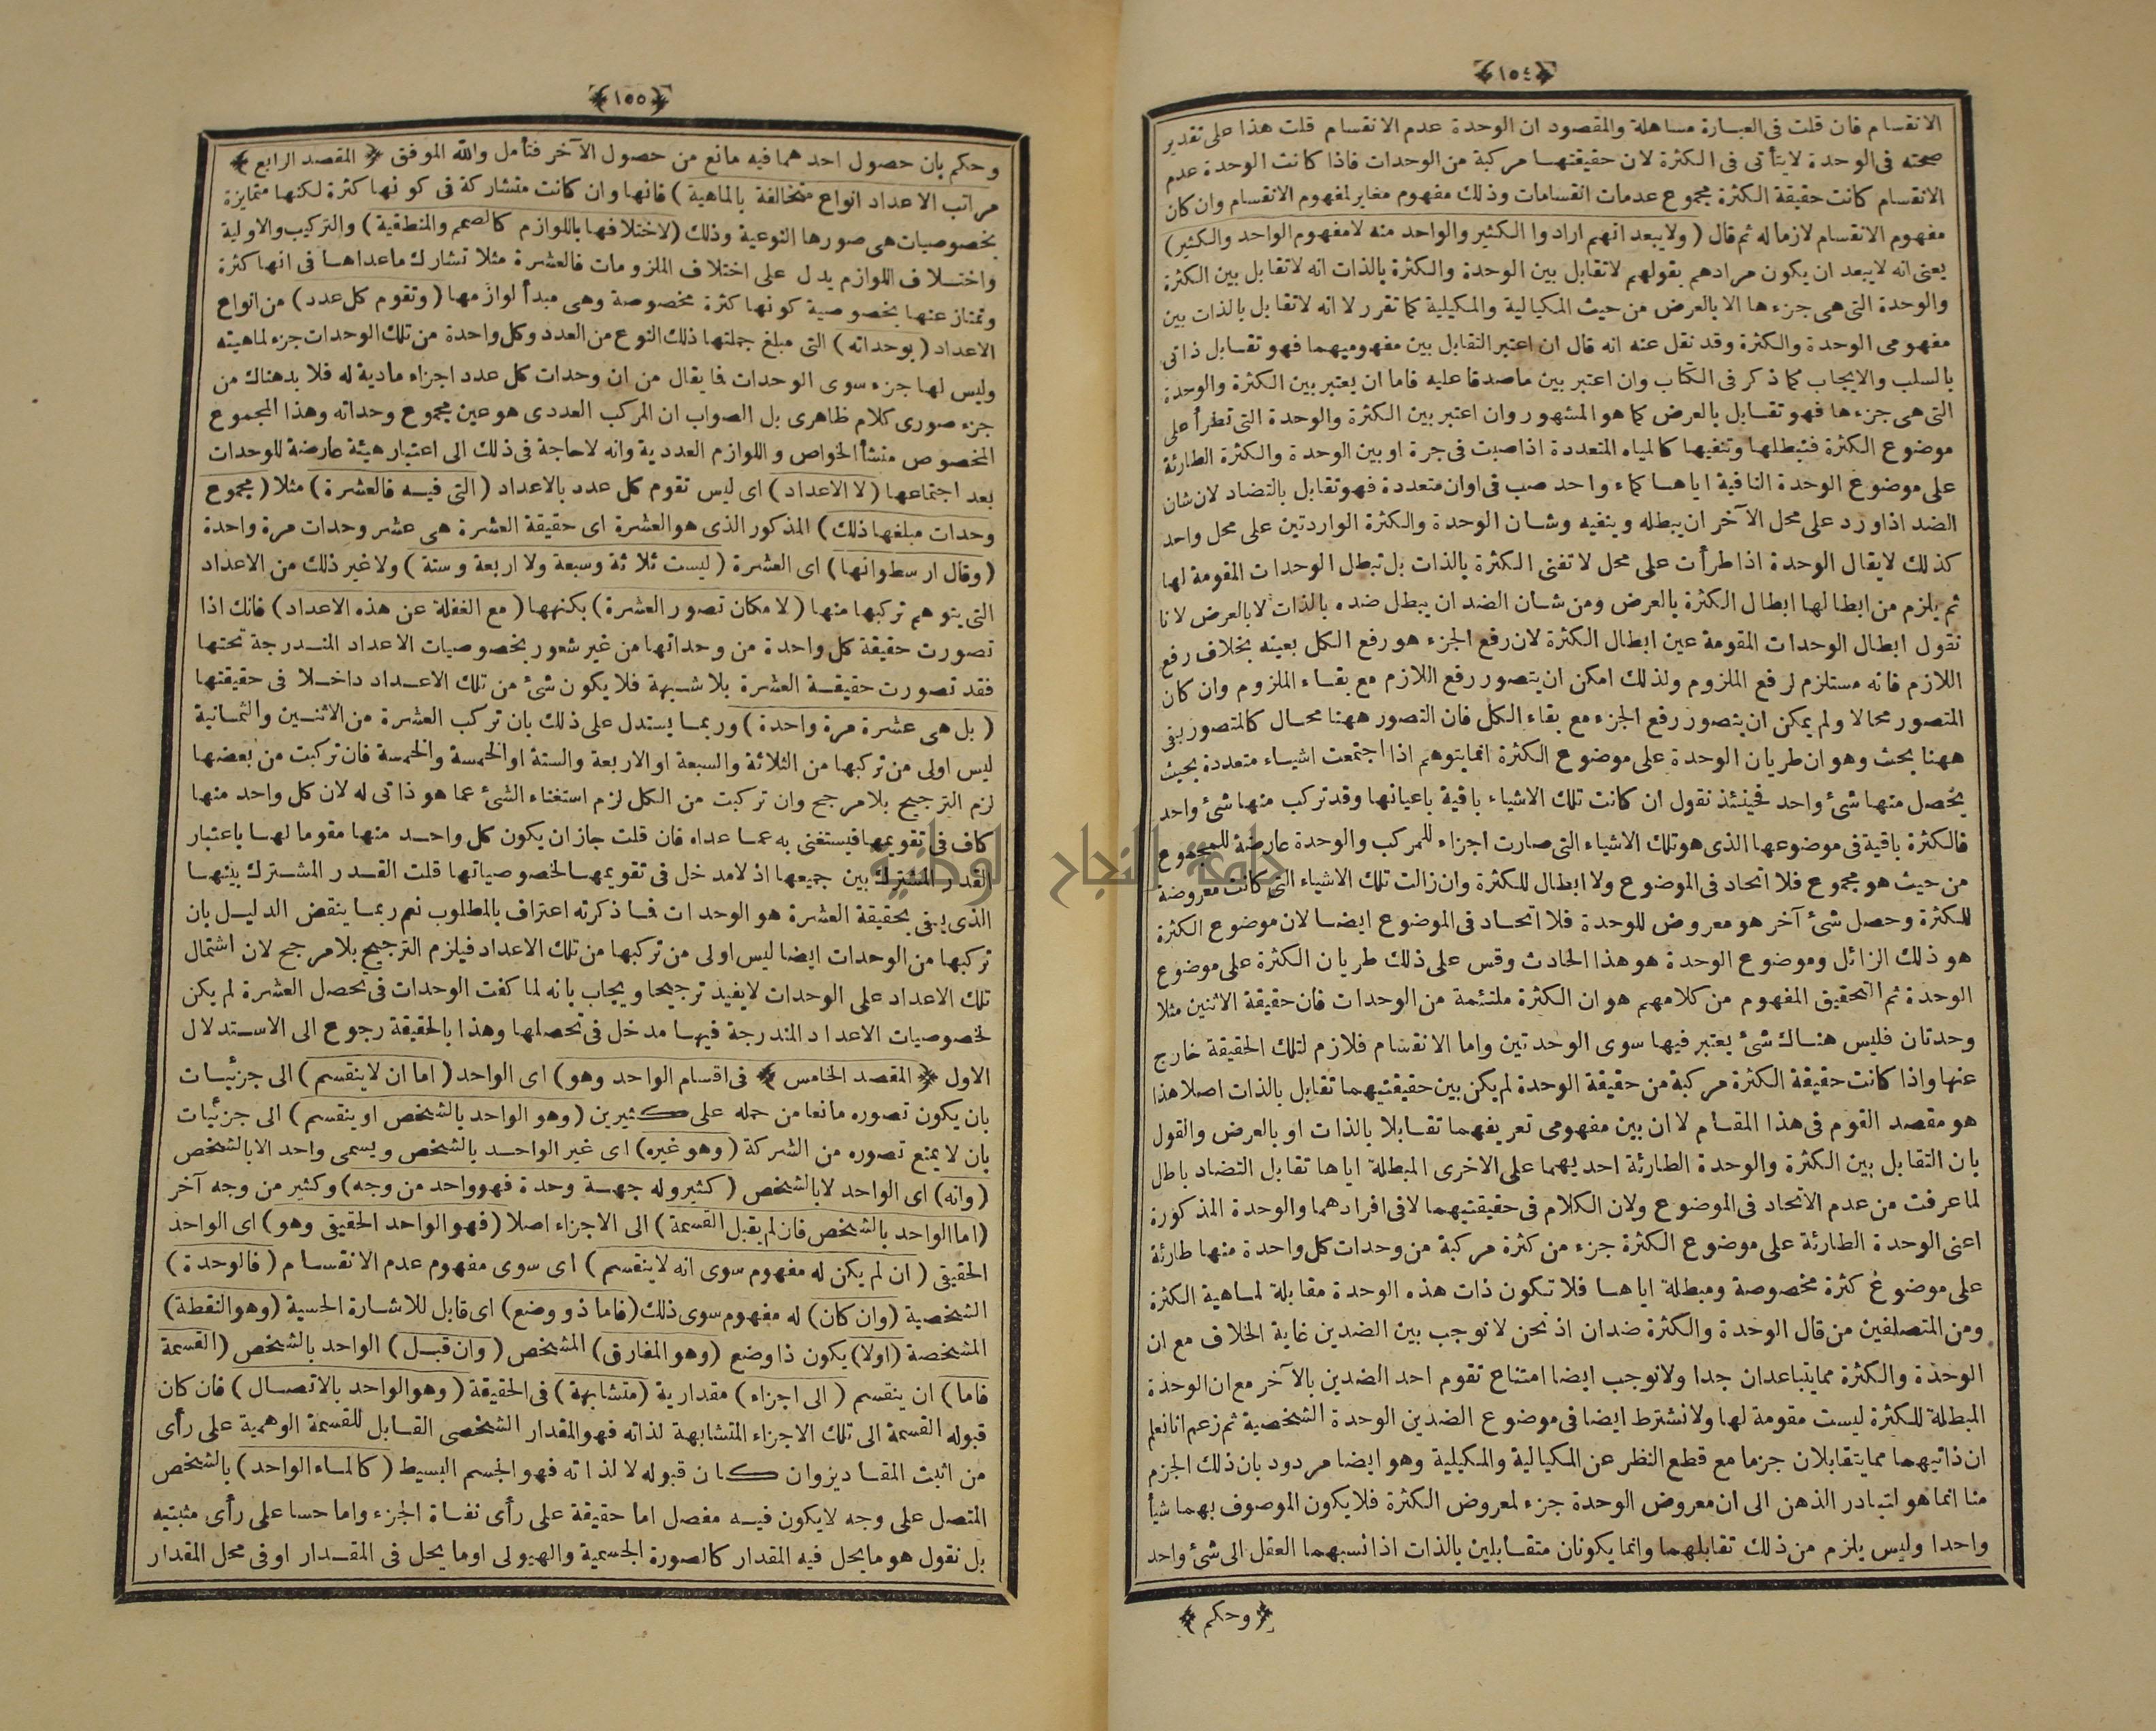 ﴿١٥٤﴾
الانقسام فان قلت فى العبارة مساهلة والمقصود ان الوحدة عدم الانقسام قلت هذا على تقدير
صحته فى الوحدة لايتأتى فى الكثرة لان حقيقتها مركبة من الوحدات فاذا كانت الوحدة عدم
الانقسام كانت حقيقة الكثرة مجموع عدمات انقسامات وذلك مفهوم مغاير لمفهوم الانقسام وان كان
مفهوم الانقسام لازما له ثم قال (ولايبعد انهم ارادوا الكثير والواحد منه لامفهوم الواحد والكثير)
يعنى انه لايبعد ان يكون مرادهم بقولهم لاتقابل بين الوحدة والكثرة بالذات انه لاتقابل بين الكثرة
والوحدة التى هى جزءها الا بالعرض من حيث المكيالية والمكيلية كما تقرر لا انه لاتقابل بالذات بين
مفهومى الوحدة والكثرة وقد نقل عنه انه قال ان اعتبر التقابل بين مفهوميهما فهو تقابل ذاتى
بالسلب والايجاب كما ذكر فى الكتاب وان اعتبر بين ماصدقا عليه فاما ان يعتبر بين الكثرة والوحدة
التى هى جزءها فهو تقابل بالعرض كما هو المشهور وان اعتبر بين الكثرة والوحدة التى تطرأ على
موضوع الكثرة فتبطلها وتنفيها كالمياه المتعددة اذا صبت فى جرة او بين الوحدة والكثرة الطارئة
على موضوع الوحدة النافية اياها كماء واحد صب فى اوان متعددة فهو تقابل بالتضاد لان شان
الضد اذا ورد على محل الآخر ان يبطله وينفيه وشان الوحدة والكثرة الواردتين على محل واحد
كذلك لايقال الوحدة اذا طرأت على محل لاتفنى الكثرة بالذات بل تبطل الوحدات المقومة لها
ثم يلزم من ابطالها ابطال الكثرة بالعرض ومن شأن الضد ان يبطل ضده بالذات لابالعرض لانا
نقول ابطال الوحدات المقومة عين ابطال الكثرة لان رفع الجزء هو رفع الكل بعينه بخلاف رفع
اللازم فانه مستلزم لرفع الملزوم ولذلك امكن ان يتصور رفع اللازم مع بقاء الملزوم وان كان
المتصور محالا ولم يمكن ان يتصور رفع الجزء مع بقاء الكل فان التصور ههنا محال كالمتصور بقى
ههنا بحث وهو ان طريان الوحدة على موضوع الكثرة انمايتوهم اذا اجتمعت اشياء متعددة بحيث
يحصل منها شئ واحد فحينئذ نقول ان كانت تلك الاشياء باقية باعيانها وقد تركب منها شئ واحد
فالكثرة باقية فى موضوعها الذى هو تلك الاشياء التى صارت اجزاء للمركب والوحدة عارضة للمجموع
من حيث هو مجموع فلا اتحاد فى الموضوع ولا ابطال للكثرة وان زالت تلك الاشياء التى كانت معروضة
للكثرة وحصل شئ آخر هو معروض للوحدة فلا اتحاد فى الموضوع ايضا لان موضوع الكثرة
هو ذلك الزائل وموضوع الوحدة هو هذا الحادث وقس على ذلك طريان الكثرة على موضوع
الوحدة ثم التحقيق المفهوم من كلامهم هو ان الكثرة ملتئمة من الوحدات فان حقيقة الاثنين مثلا
وحدتان فليس هناك شئ يعتبر فيها سوى الوحدتين واما الانقسام فلازم لتلك الحقيقة خارج
عنها واذا كانت حقيقة الكثرة مركبة من حقيقة الوحدة لم يكن بين حقيقتيهما تقابل بالذات اصلا هذا
هو مقصد القوم فى هذا المقام لا ان بين مفهومى تعريفهما تقابلا بالذات او بالعرض والقول
بان التقابل بين الكثرة والوحدة الطارئة احديهما على الاخرى المبطلة اياها تقابل التضاد باطل
لما عرفت من عدم الاتحاد فى الموضوع ولان الكلام فى حقيقتيهما لافى افرادهما والوحدة المذكورة
اعنى الوحدة الطارئة على موضوع الكثرة جزء من كثرة مركبة من وحدات كل واحدة منها طارئة
على موضوع كثرة مخصوصة ومبطلة اياها فلا تكون ذات هذه الوحدة مقابلة لماهية الكثرة
ومن المتصلفين من قال الوحدة والكثرة ضدان اذ نحن لانوجب بين الضدين غاية الخلاف مع ان
الوحدة والكثرة ممايتباعدان جدا ولانوجب ايضا امتناع تقوم احد الضدين بالآخر مع ان الوحدة
المبطلة للكثرة ليست مقومة لها ولانشترط ايضا فى موضوع الضدين الوحدة الشخصية ثم زعم انا نعلم
ان ذاتيهما ممايتقابلان جزما مع قطع النظر عن المكيالية والمكيلية وهو ايضا مردود بان ذلك الجزم
منا انما هو لتبادر الذهن الى ان معروض الوحدة جزء لمعروض الكثرة فلايكون الموصوف بهما شيأ
واحدا وليس يلزم من ذلك تقابلهما وانما يكونان متقابلين بالذات اذا نسبهما العقل الى شئ واحد
﴿وحكم﴾
﴿١٥٥﴾
وحكم بان حصول احدهما فيه مانع من حصول الآخر فتأمل والله الموفق ﴿المقصد الرابع﴾
مراتب الاعداد انواع متخالفة بالماهية) فانها وان كانت متشاركة فى كونها كثرة لكنها متمايزة
بخصوصيات هى صورها النوعية وذلك (لاختلافها باللوازم كالصمم والمنطقية) والتركيب والاولية
واختلاف اللوازم يدل على اختلاف الملزومات فالعشرة مثلا تشارك ماعداها فى انها كثرة
وتمتاز عنها بخصوصية كونها كثرة مخصوصة وهى مبدأ لوازمها (وتقوم كل عدد) من انواع
الاعداد (بوحداته) التى مبلغ جملتها ذلك النوع من العدد وكل واحدة من تلك الوحدات جزء لماهيته
وليس لها جزء سوى الوحدات فايقال من ان وحدات كل عدد اجزاء مادية له فلا بد هناك من
جزء صورى كلام ظاهرى بل الصواب ان المركب العددى هو عين مجموع وحداته وهذا المجموع
المخصوص منشأ الخواص و اللوازم العددية وانه لاحاجة فى ذلك الى اعتبار هيئة عارضة للوحدات
بعد اجتماعها (لا الاعداد) اى ليس تقوم كل عدد بالاعداد (التى فيه فالعشرة) مثلا (مجموع
وحدات مبلغها ذلك) المذكور الذى هو العشرة اى حقيقة العشرة هى عشر وحدات مرة واحدة
(وقال ارسطو انها) اى العشرة (ليست ثلاثة وسبعة ولا اربعة وستة) ولا غير ذلك من الاعداد
التى يتوهم تركبها منها (لامكان تصور العشرة) بكنهها (مع الغفلة عن هذه الاعداد) فانك اذا
تصورت حقيقة كل واحدة من وحداتها من غير شعور بخصوصيات الاعداد المندرجة تحتها
فقد تصورت حقيقة العشرة بلا شبهة فلا يكون شئ من تلك الاعداد داخلا فى حقيقتها
(بل هى عشرة مرة واحدة) وربما يستدل على ذلك بان تركب العشرة من الاثنين والثمانية
ليس اولى من تركبها من الثلاثة والسبعة او الاربعة والستة او الخمسة والخمسة فان تركبت من بعضها
لزم الترجيح بلامرجح وان تركبت من الكل لزم استغناء الشئ عما هو ذاتى له لان كل واحد منها
كاف فى تقويمها فيستغنى به عما عداه فان قلت جاز ان يكون كل واحد منها مقوما لها باعتبار
القدر المشترك بين جميعها اذ لامدخل فى تقويمها لخصوصياتها قلت القدر المشترك بينها
الذى يفى بحقيقة العشرة هو الوحدات فما ذكرته اعتراف بالمطلوب نعم ربما ينقض الدليل بان
تركبها من الوحدات ايضا ليس اولى من تركبها من تلك الاعداد فيلزم الترجيح بلامرجح لان اشتمال
تلك الاعداد على الوحدات لايفيد ترجيحا ويجاب بانه لما كفت الوحدات فى تحصل العشرة لم يكن
لخصوصيات الاعداد المندرجة فيها مدخل فى تحصلها وهذا بالحقيقة رجوع الى الاستدلال
الاول ﴿المقصد الخامس﴾ فى اقسام الواحد وهو) اى الواحد (اما ان لاينقسم) الى جزئيات
بان يكون تصوره مانعا من حمله على كثيرين (وهو الواحد بالشخص او ينقسم) الى جزئيات
بان لايمنع تصوره من الشركة (وهو غيره) اى غير الواحد بالشخص ويسمى واحد الابالشخص
(وانه) اى الواحد لابالشخص (كثير وله جهة وحدة فهو واحد من وجه) وكثير من وجه آخر
(اما الواحد بالشخص فان لم يقبل القسمة) الى الاجزاء اصلا (فهو الواحد الحقيقى وهو) اى الواحد
الحقيقى (ان لم يكن له مفهوم سوى انه لاينقسم) اى سوى مفهوم عدم الانقسام (فالوحدة)
الشخصية (وان كان) له مفهوم سوى ذلك (فاما ذو وضع) اى قابل للاشارة الحسية (وهو النقطة)
المشخصة (اولا) يكون ذا وضع (وهو المفارق) المشخص (وان قبل) الواحد بالشخص (القسمة
فاما) ان ينقسم (الى اجزاء) مقدارية (متشابهة) فى الحقيقة (وهو الواحد بالاتصال) فان كان
قبوله القسمة الى تلك الاجزاء المتشابهة لذاته فهو المقدار الشخصى القابل للقسمة الوهمية على رأى
من اثبت المقادير وان كان قبوله لا لذاته فهو الجسم البسيط (كالماء الواحد) بالشخص
المتصل على وجه لايكون فيه مفصل اما حقيقة على رأى نفاة الجزء واما حسا على رأى مثبتيه
بل نقول هو مايحل فيه المقدار كالصورة الجسمية والهيولى او ما يحل فى المقدار او فى محل المقدار
جامعة النجاح الوطنية